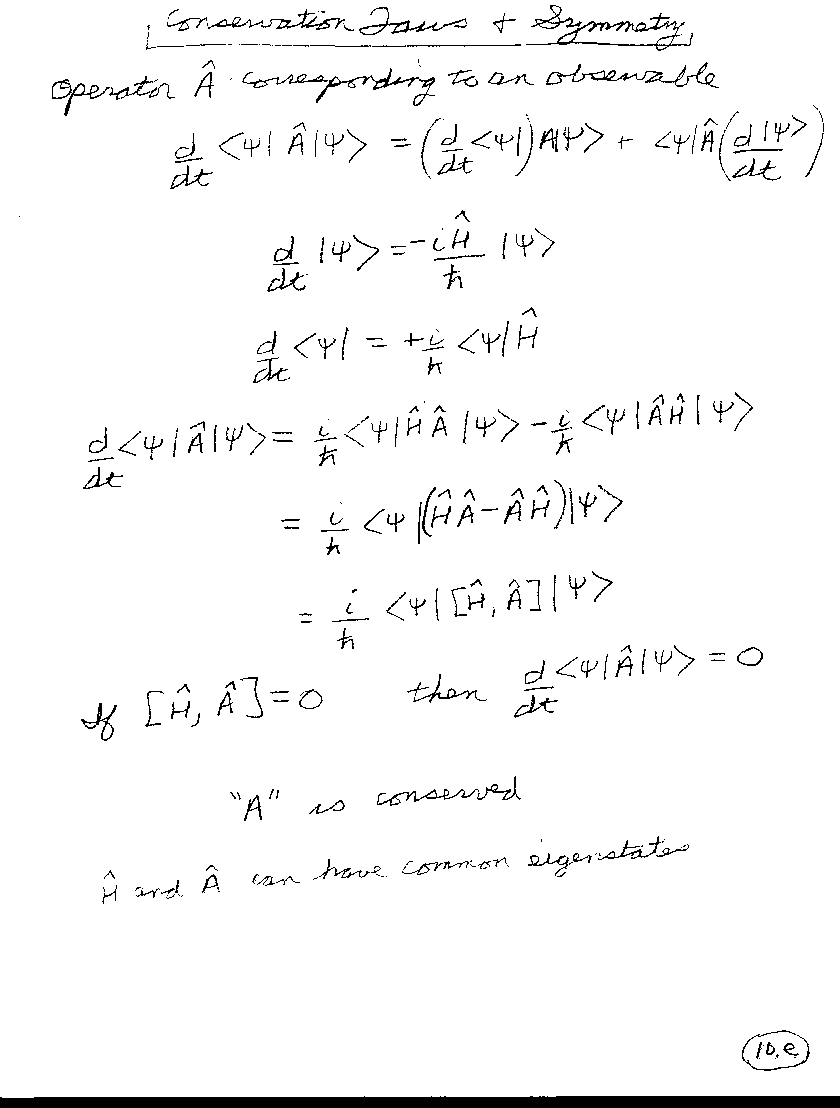 Conservation Laws + Symmetry
Operator Â corresponding to an observable
d/dt <ψ|Â|ψ> = (d/dt <ψ|) A|ψ> + <ψ|Â (d|ψ>/dt)
d/dt |ψ> = -iĤ/ħ |ψ>
d/dt <ψ| = +i/ħ <ψ|Ĥ
d/dt <ψ|Â|ψ> = i/ħ <ψ|ĤÂ|ψ> - i/ħ <ψ|ÂĤ|ψ>
= i/ħ <ψ|(ĤÂ-ÂĤ)|ψ>
= i/ħ <ψ|[Ĥ, Â]|ψ>
If [Ĥ, Â] = 0 then d/dt <ψ|Â|ψ> = 0
"A" is conserved
Ĥ and Â can have common eigenstates
10.e